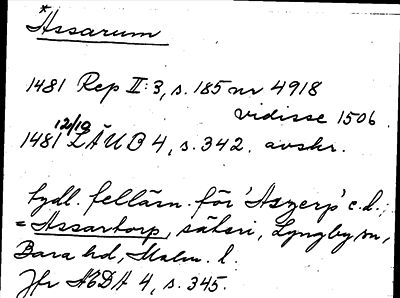 *Assarum
1481 Rep II:3, s. 185 nr 4918
vidisse 1506.
12/10
1481 LÄUB 4, s. 342. avskr.
tydl. fellärn. för 'Aszerp' e.d.;
= Assartorp, säteri, Lyngby sn,
Bara hd, Malm. l.
Jfr ÄSDA 4, s. 345.